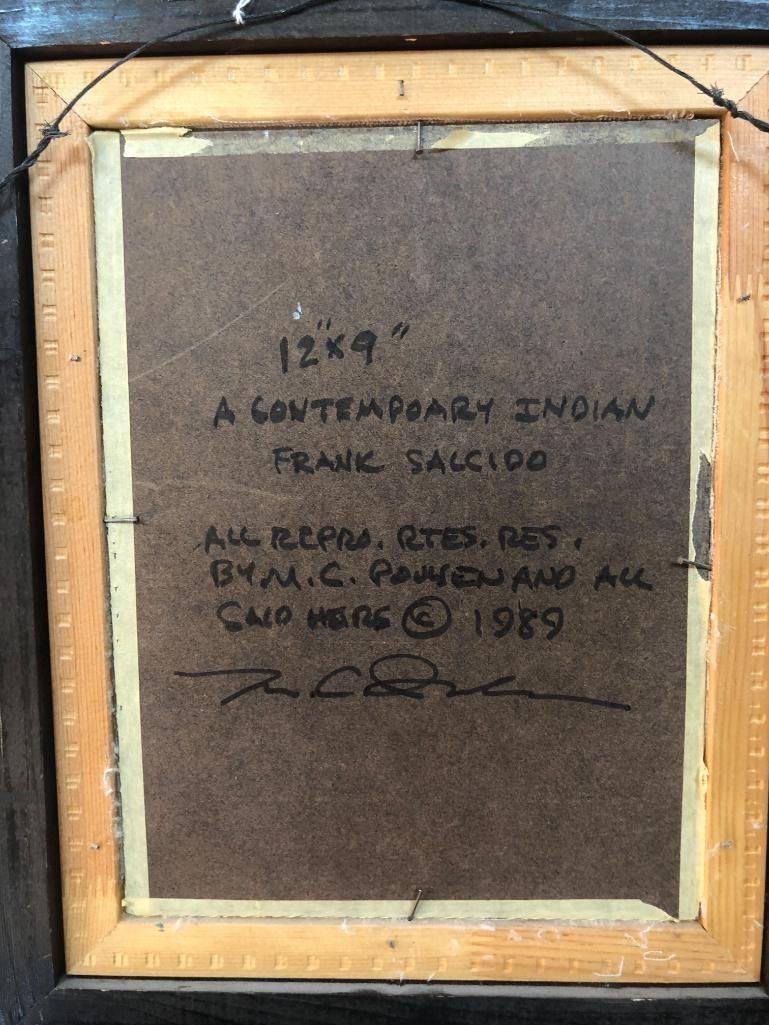 12"x9"
A CONTEMPOARY INDIAN
FRANK SALCIDO
ALL REPRO. RTES. RES.
BY M.C. POULSEN AND ALL
SAID HEIRS © 1989